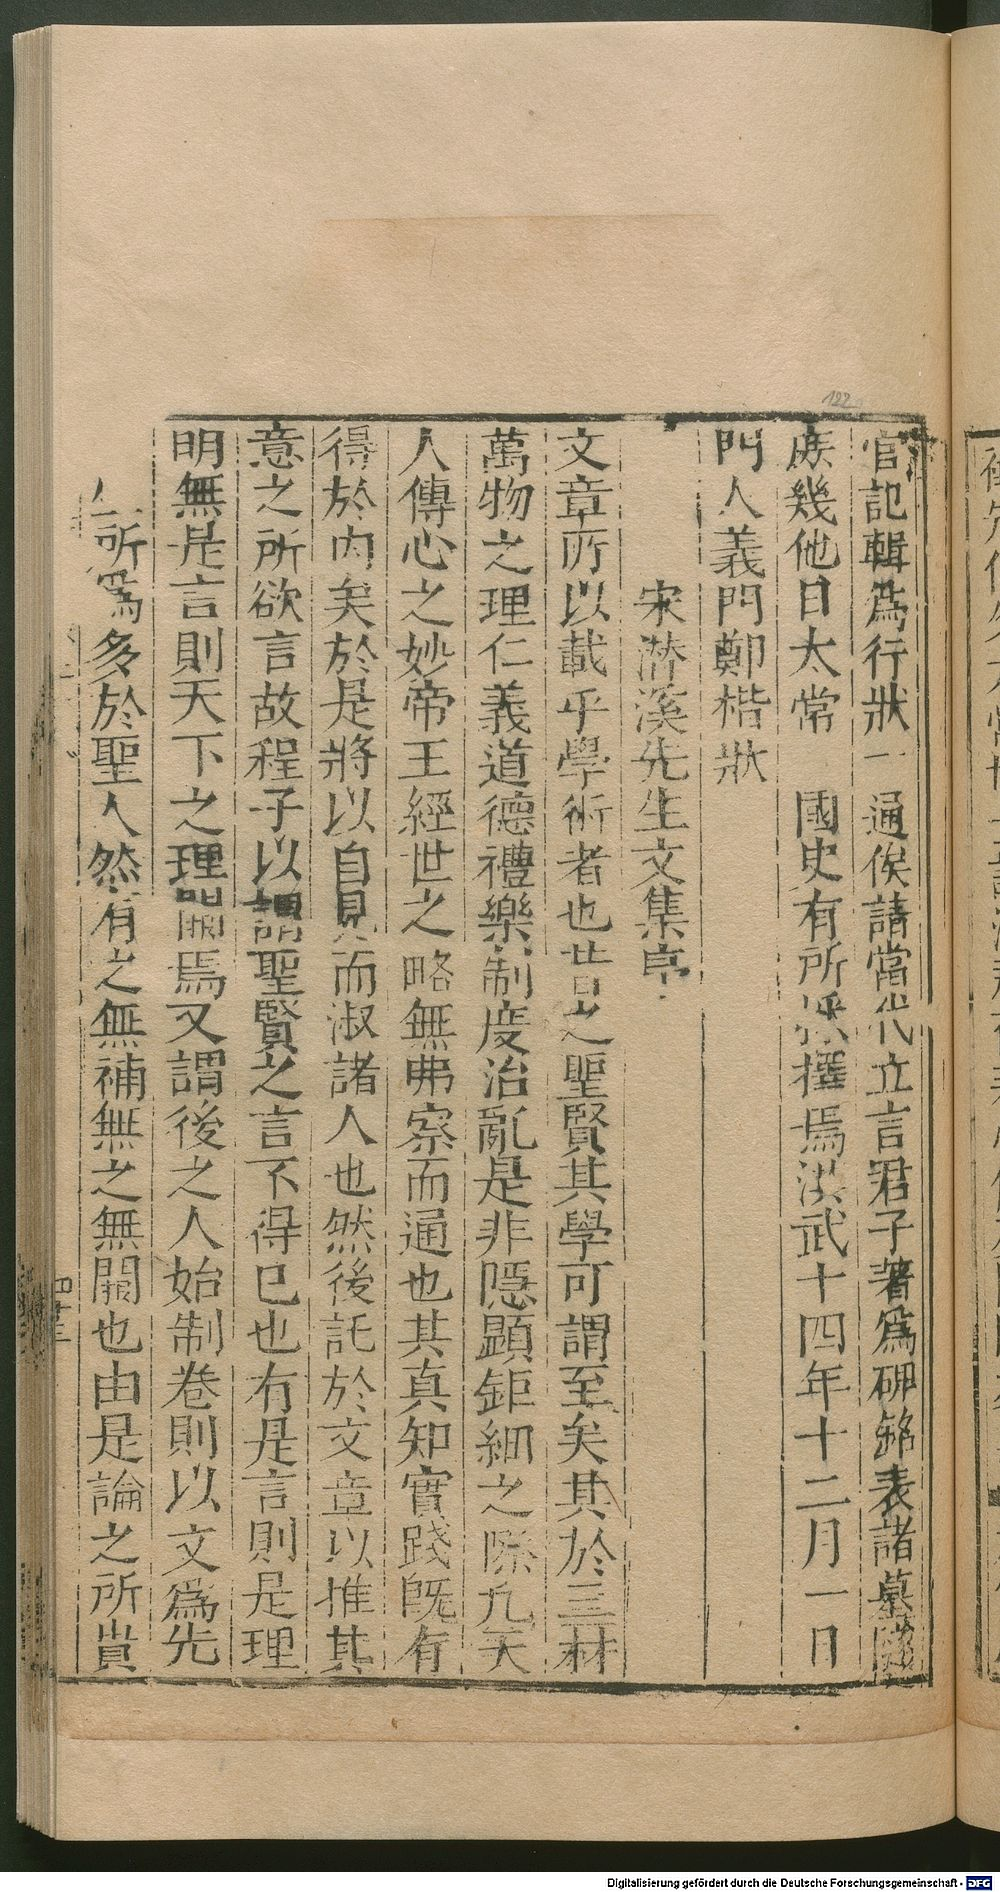 官記輯爲行狀一通俟請當代立言君子著爲碑銘表諸墓隧
庶幾他日太常　國史有所採擇焉洪武十四年十二月一日
門人義門鄭楷狀
宋潛溪先生文集序
文章所以載乎學術者也昔之聖賢其學可謂至矣其於三材
萬物之理仁義道德禮樂制度治亂是非隱顯鉅細之際凡天
人傳心之妙帝王經世之略無弗察而通也其真知實踐旣有
得於内矣於是將以自見而淑諸人也然後託於文章以推其
意之所欲言故程子以謂聖賢之言不得已也有是言則是理
明無是言則天下之理闕焉又謂後之人始制卷則以文爲先
所爲多於聖人然有之無補無之無闕也由是論之所貴
四十三
122
Digitalisierung gefördert durch die Deutsche Forschungsgemeinschaft - DFG